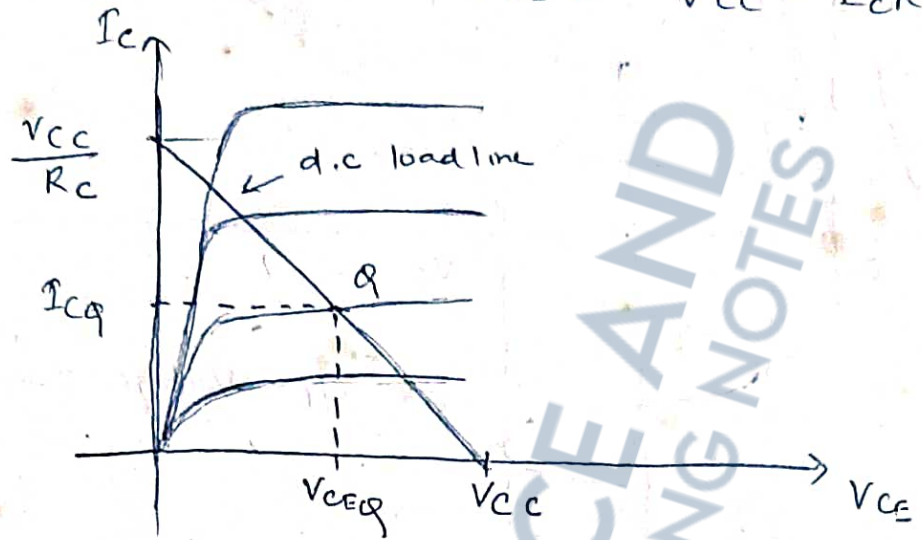 VCC ICR
IC
VCC
RC
d.c loadline
Q
ICQ
VCEQ
VCC
VCE
CE AND
NG NOTES